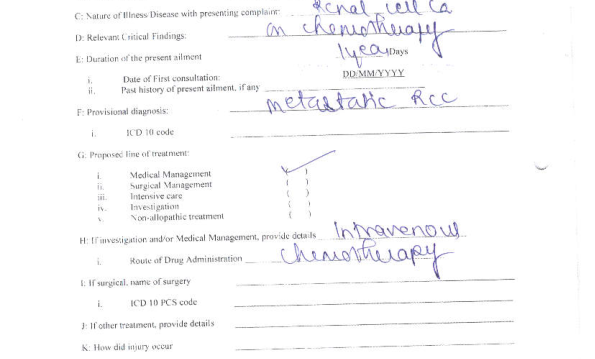 C: Nature of Illness Disease with presenting complaint: Renal cell Ca
D: Relevant Critical Findings: on chemotherapy
E: Duration of the present ailment 1 year Days
i. Date of First consultation: DD/MM/YYYY
ii. Past history of present ailment, if any
F: Provisional diagnosis: metastatic RCC
i. ICD 10 code
G: Proposed line of treatment:
i. Medical Management ✓
ii. Surgical Management ( )
iii. Intensive care ( )
iv. Investigation ( )
v. Non-allopathic treatment ( )
H: If investigation and/or Medical Management, provide details Intravenous
i. Route of Drug Administration chemotherapy
I: If surgical, name of surgery
i. ICD 10 PCS code
J: If other treatment, provide details
K: How did injury occur